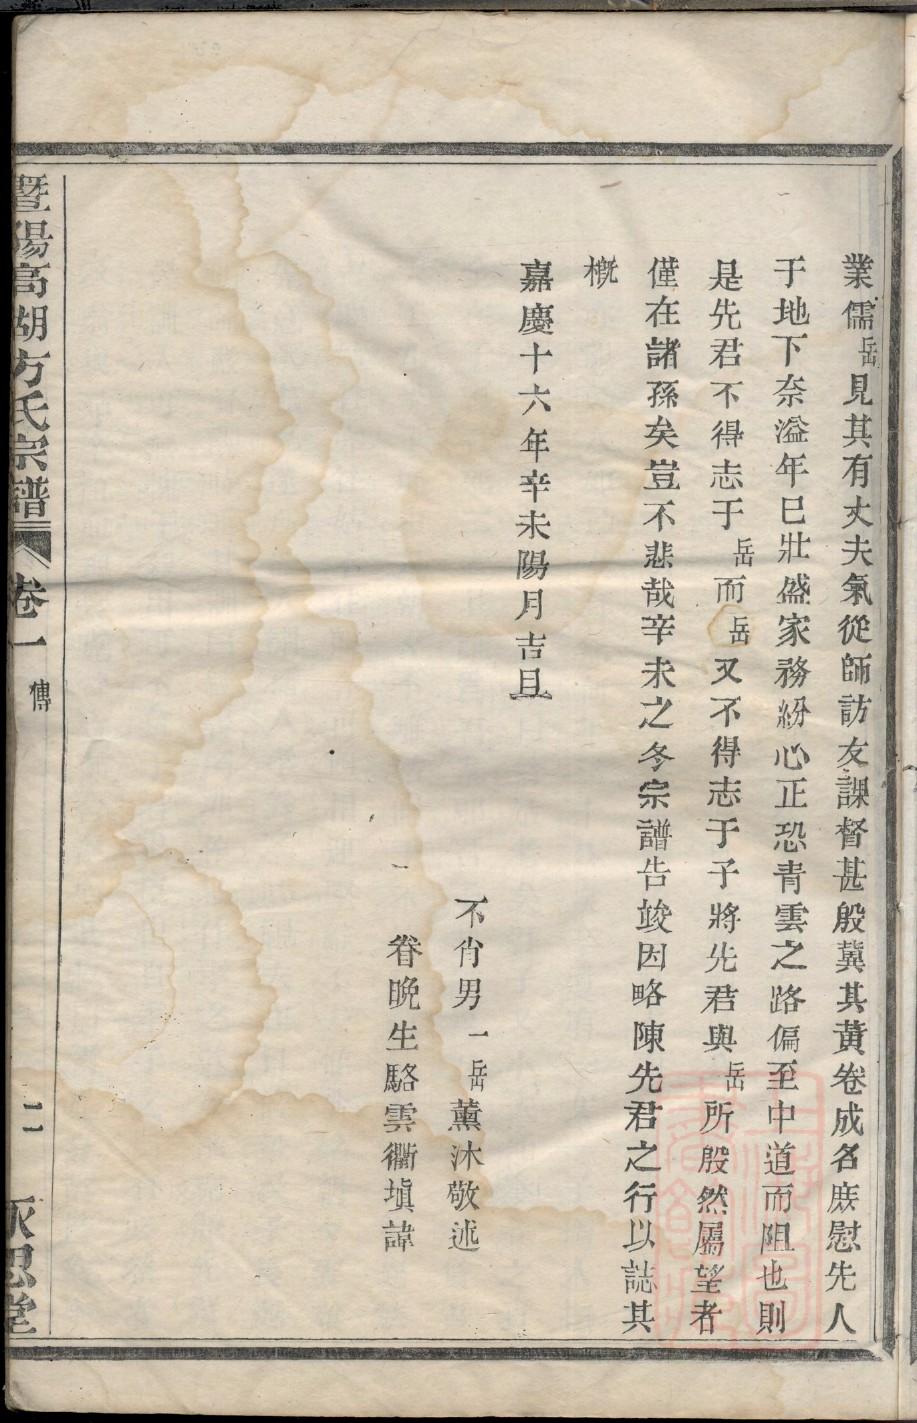 業儒岳見其有丈夫氣從師訪友課督甚殷冀其黄卷成名庶慰先人
于地下奈溢年巳壯盛家務紛心正恐青雲之路偏至中道而阻也則
是先君不得志于岳而岳又不得志于子將先君與岳所殷然屬望者
僅在諸孫矣豈不悲哉辛未之冬宗譜告竣因略陳先君之行以誌其
概
嘉慶十六年辛未陽月吉旦
不肖男一岳薰沐敬述
眷晚生駱雲衢塡諱
暨陽高湖方氏宗譜 卷一 傳 二 永思堂